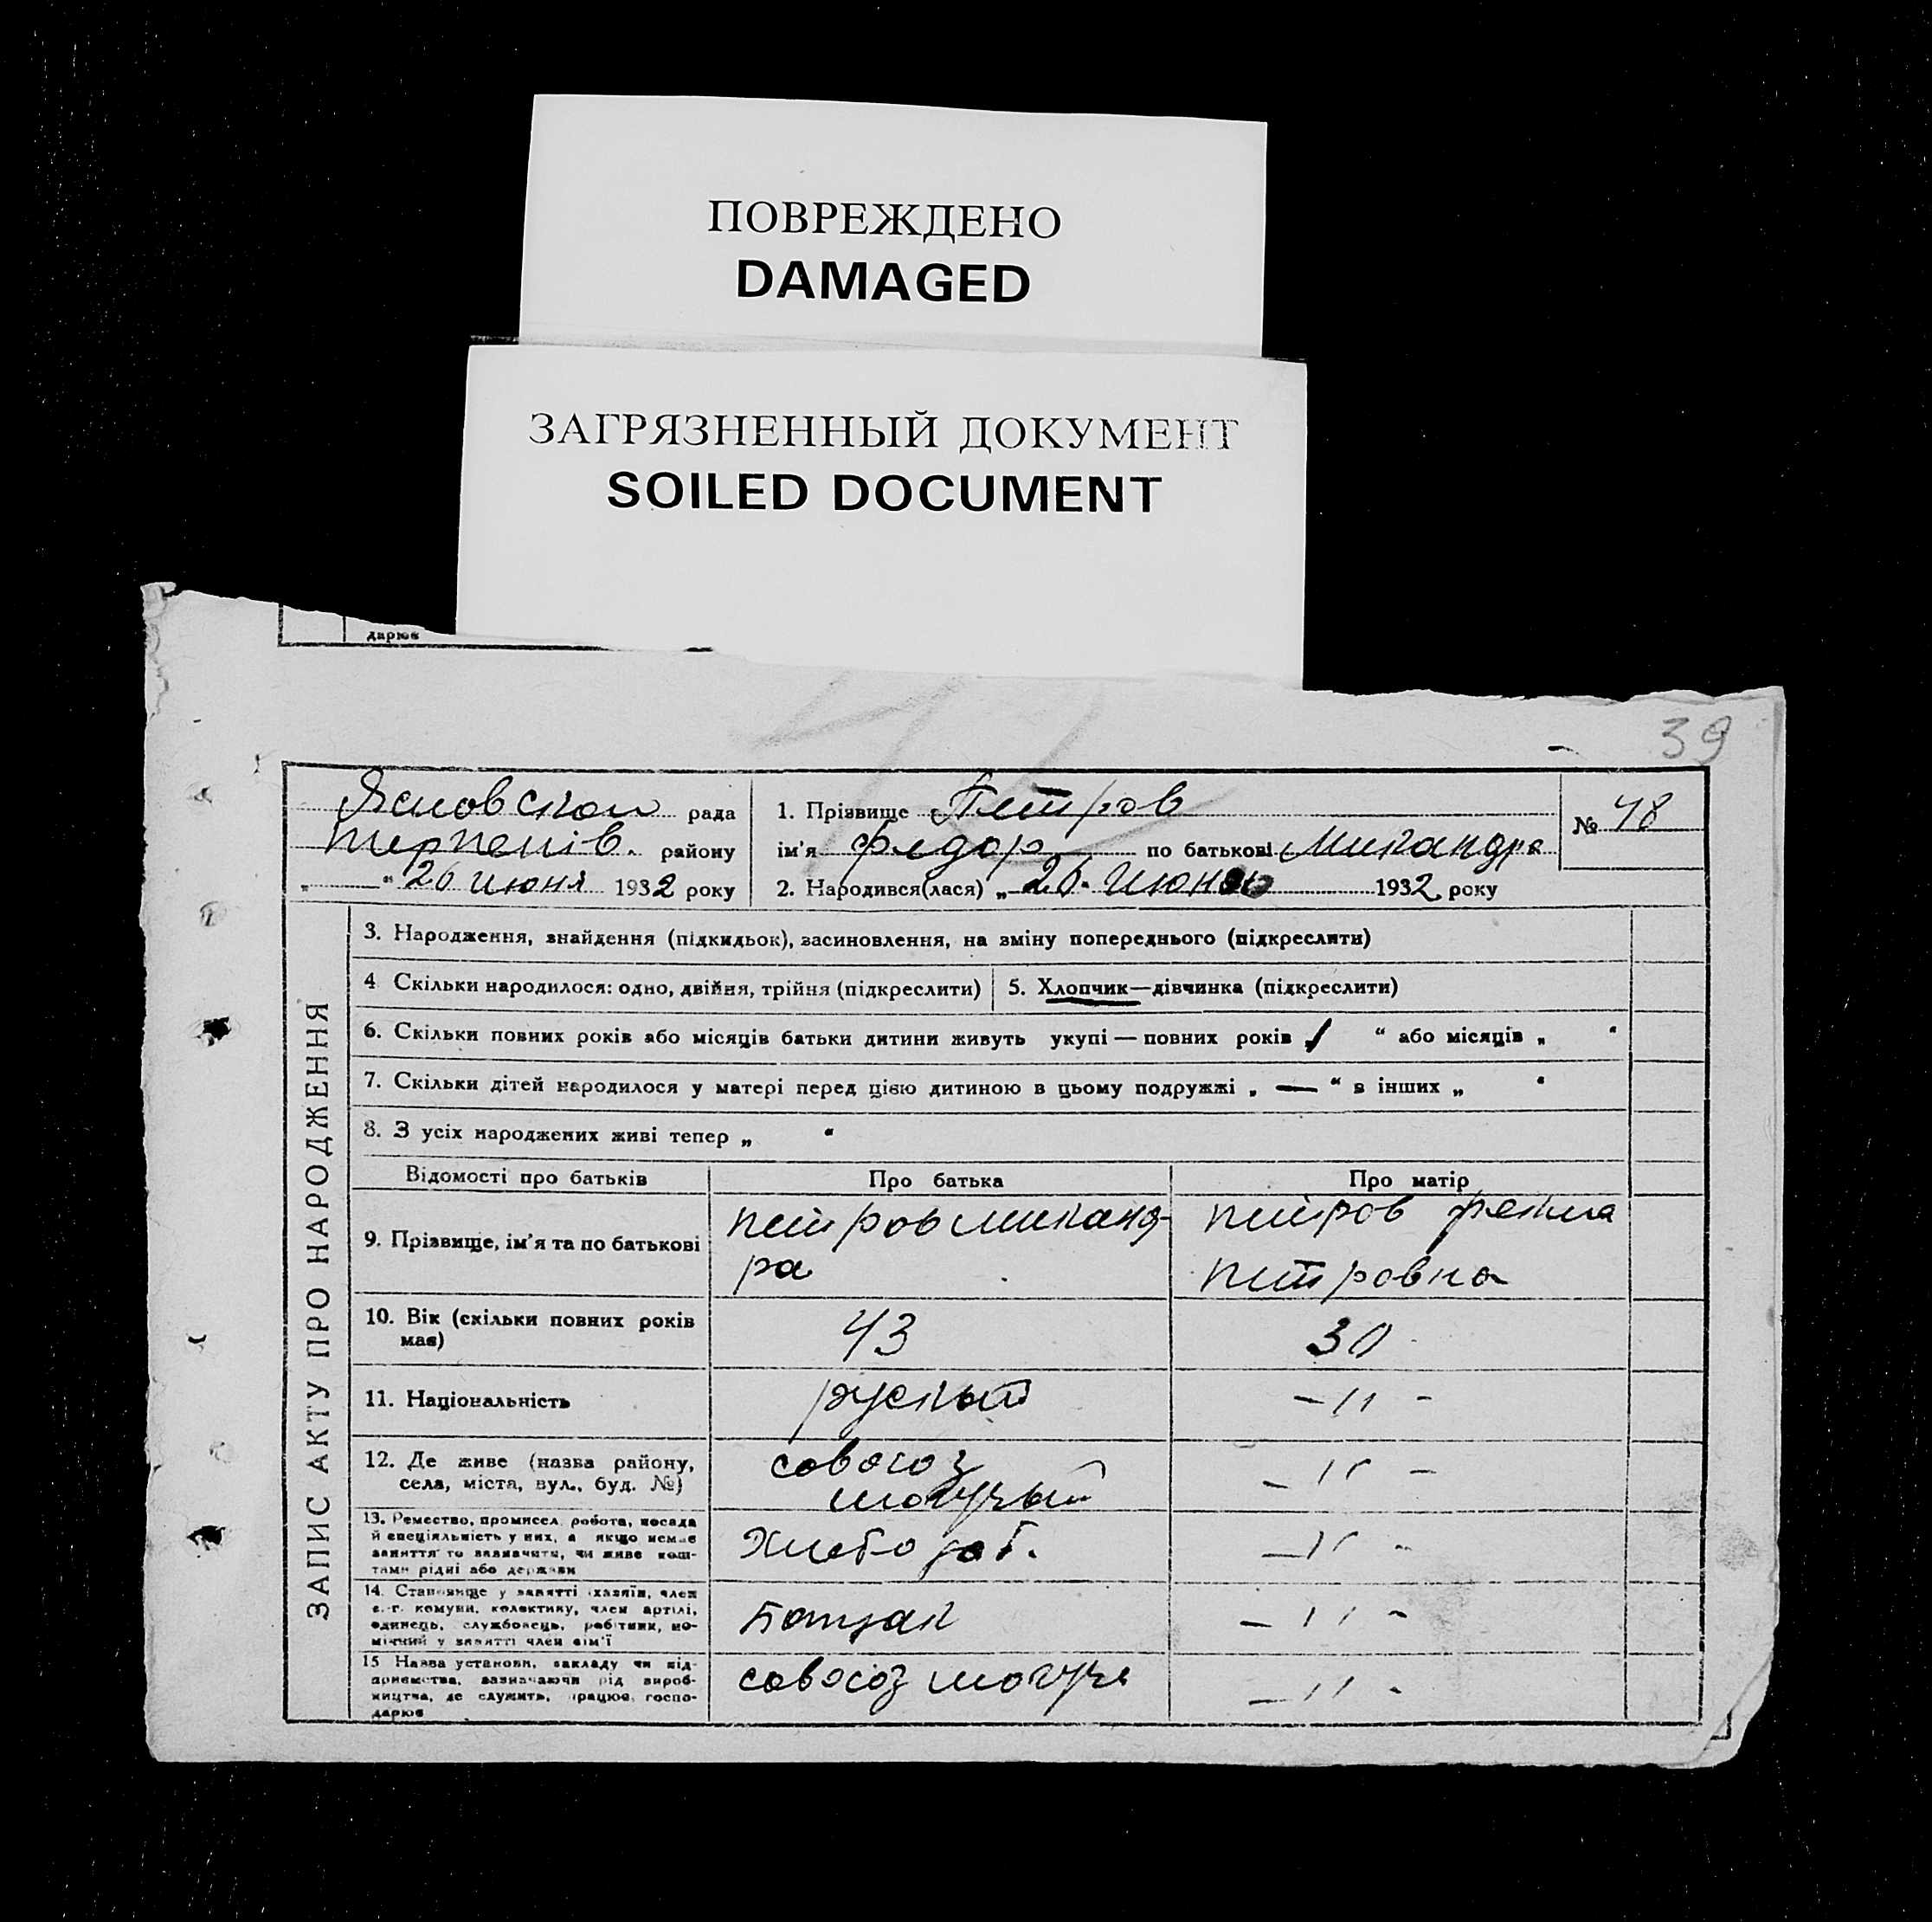 ПОВРЕЖДЕНО
DAMAGED
ЗАГРЯЗНЕННЫЙ ДОКУМЕНТ
SOILED DOCUMENT
дарює
39
рада
1. Прізвище Петров
№ 48
район у
ім'я Федор по батькові Микандра
„ “ 26 июня 1932 року
2. Народився(лася) „ 26. Июня 1932 року
ЗАПИС АКТУ ПРО НАРОДЖЕННЯ
3. Народження, знайдення (підкидьок), засиновлення, на зміну попереднього (підкреслити)
4 Скільки народилося: одно, двійня, трійня (підкреслити)
5. Хлопчик—дівчинка (підкреслити)
6. Скільки повних років або місяців батьки дитини живуть укупі — повних років „ 1 “ або місяців „ “
7. Скільки дітей народилося у матері перед цією дитиною в цьому подружжі „ — “ в інших „ “
8. З усіх народжених живі тепер „ “
Відомості про батьків Про батька Про матір
9. Прізвище, ім'я та по батькові
Петров Миканд-
ра
Петров
Петровна
10. Вік (скільки повних років
має)
43 30
11. Національність руский - 11 -
12. Де живе (назва району,
села, міста, вул., буд. №)
совхоз
могучый
- 11 -
13. Ремество, промисел, робота, посада
й спеціяльність у них, а якщо немає
заняття то зазначити, чи живе кош-
тами рідні або держави
Хлебороб. - 11 -
14. Становище у занятті (хазяїн, член
с.-г. комуни, колективу, член артілі,
одинець, службовець, робітник, по-
мічний у занятті член сім'ї
Батрак - 11 -
15 Назва установи, закладу чи під-
приємства, зазначаючи рід вироб-
ництва, де служить, працює, госпо-
дарює
совхоз могуче - 11 -